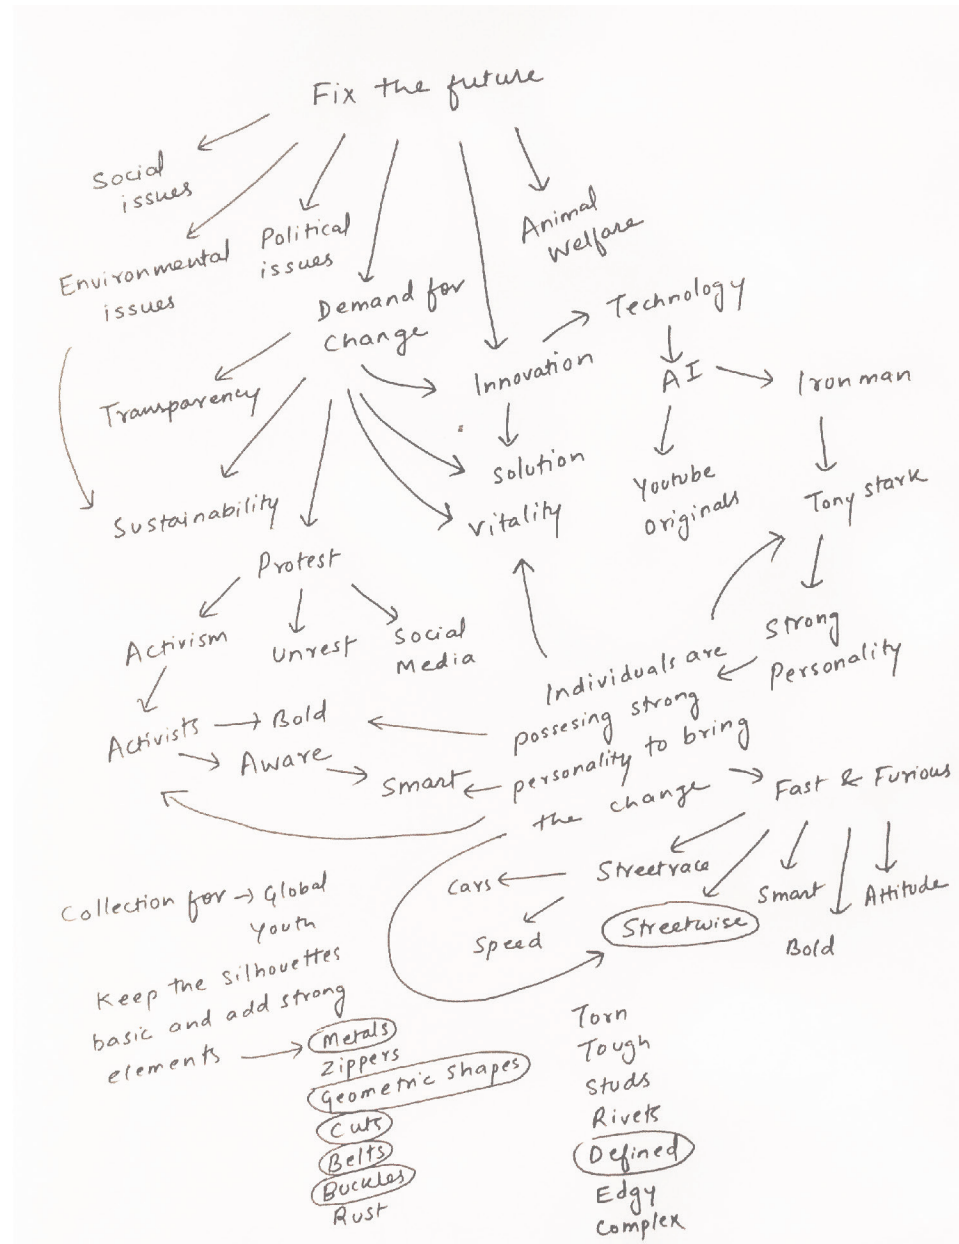 Fix the future
Social
issues
Environmental
issues
Political
issues
Animal
Welfare
Demand for
Change
Technology
Innovation
AI
Iron man
Transparency
Solution
Youtube
Originals
Tony stark
Sustainability
Vitality
Protest
Activism
Unrest
Social
Media
Strong
Personality
Activists
Bold
Aware
Smart
Individuals are
possesing strong
personality to bring
the change
Fast & Furious
Streetrace
Cars
Speed
Streetwise
Smart
Bold
Attitude
Collection for → Global
Youth
Keep the silhouettes
basic and add strong
elements
Metals
Zippers
Geometric shapes
Cuts
Belts
Buckles
Rust
Torn
Tough
Studs
Rivets
Defined
Edgy
Complex